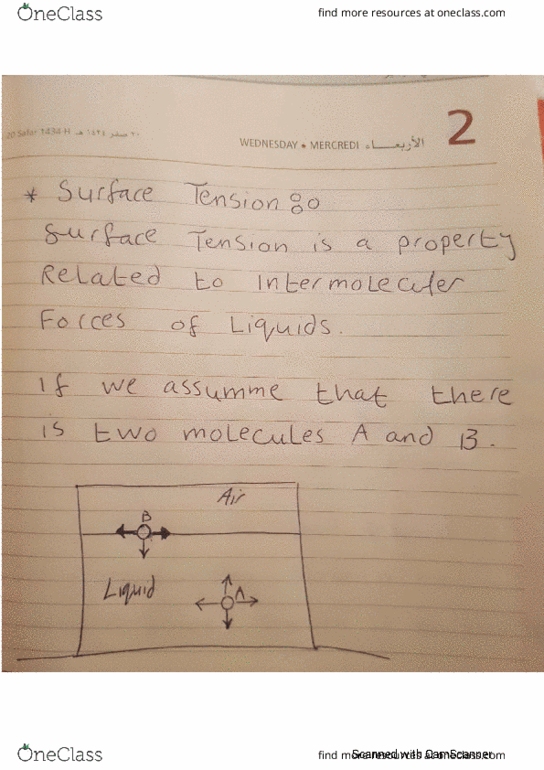 OneClass
find more resources at oneclass.com
20 Safar 1434 H ٢٠ صفر ١٤٣٤ هـ
WEDNESDAY • MERCREDI الأربعاء
2
* Surface Tension :-
Surface Tension is a property
Related to intermoleculer
Forces of Liquids.
if we assumme that there
is two molecules A and B.
Air
B
Liquid
A
OneClass
find more resources at oneclass.com
Scanned with CamScanner